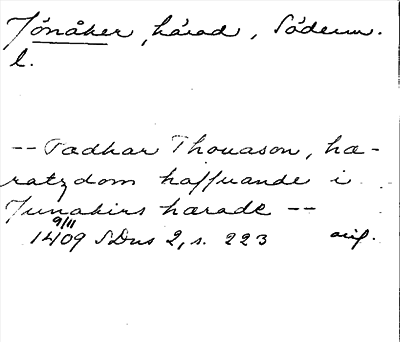 Jönåker, härad, Söderm.
l.
-- Tadhar Thouason, hæ-
ratzdom haffuande i
Junakirs hærade --
9/11
1409 SDns 2, s. 223 orig.